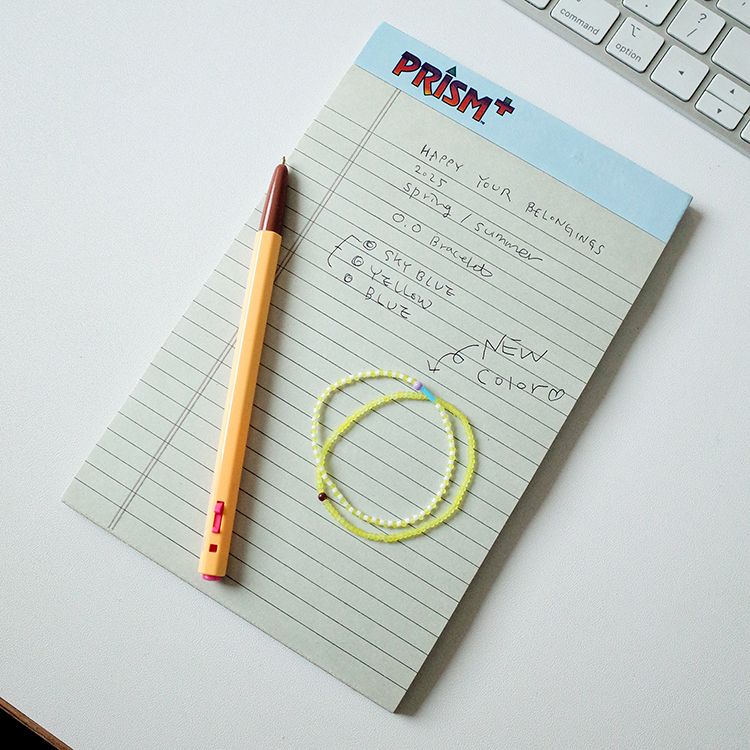 command
option
?
/
PRISM+
TM
HAPPY YOUR BELONGINGS
2025
Spring / Summer
O.O Bracelet
SKY BLUE
YELLOW
BLUE
NEW
Color♡